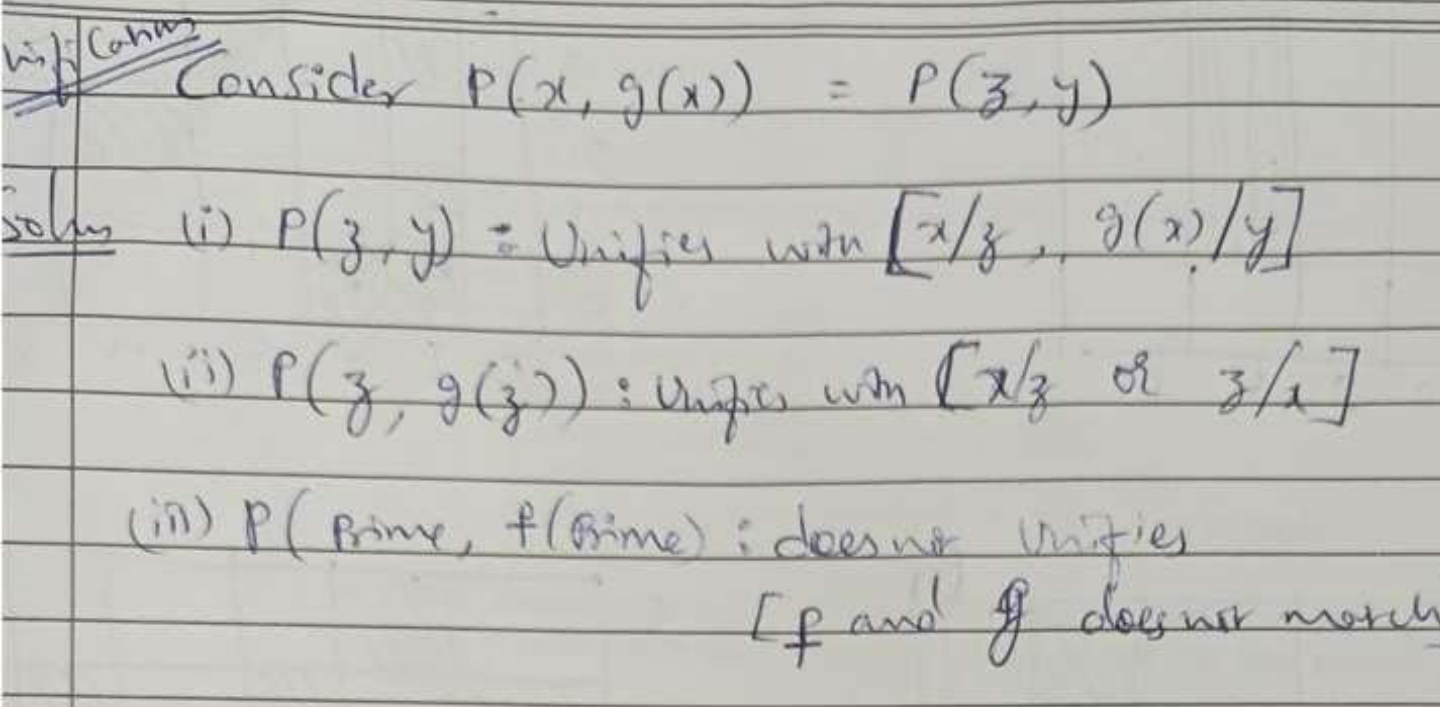 Consider P(x, g(x)) = P(z, y)
Soln (i) P(z, y) : Unifies with [x/z, g(x)/y]
(ii) P(z, g(z)) : Unifies with [x/z or z/x]
(iii) P(Prime, f(Prime) : does not Unifies
[f and g does not match